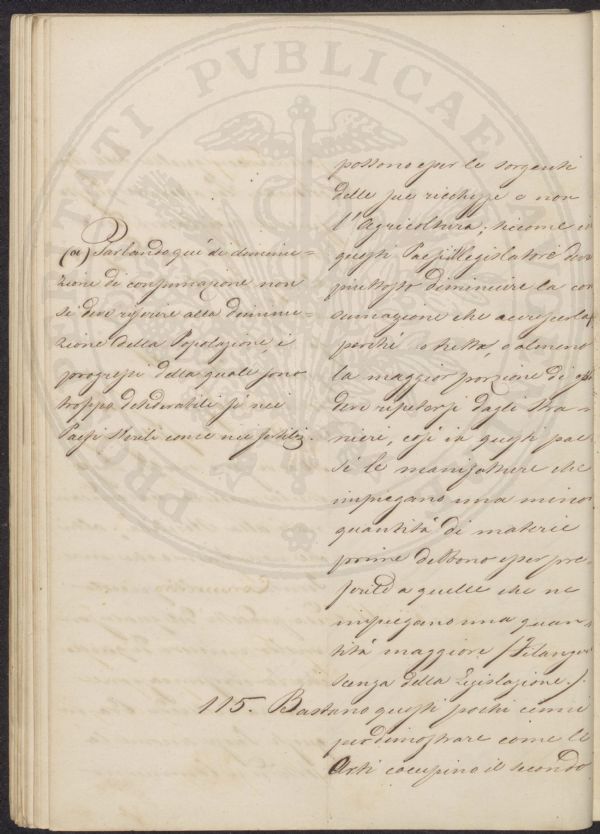 PROSPERITATI PVBLICAE
possono esser le sorgenti
delle sue ricchezze e non
l'Agricoltura; siccome in
questi Paesi il legislatore deve
piuttosto diminuire la con
sumazione che accrescerla (a)
perché o tutta, o almeno
la maggior porzione di essa
deve ripetersi dagli stra=
nieri, così in questi pae
si le manifatture che
impiegano una minor
quantità di materie
prime debbono esser pre=
ferite a quelle che ne
impiegano una quan=
tità maggiore (Filangieri
Scenza della Legislazione.)
115. Bastano questi pochi cenni
per dimostrare come le
Arti occupino il secondo
(a) Parlando qui di diminu=
zione di consumazione non
si deve riferire alla diminu=
zione della Popolazione, i
progressi della quale sono
troppo desiderabili sì nei
Paesi sterili come nei fertili.